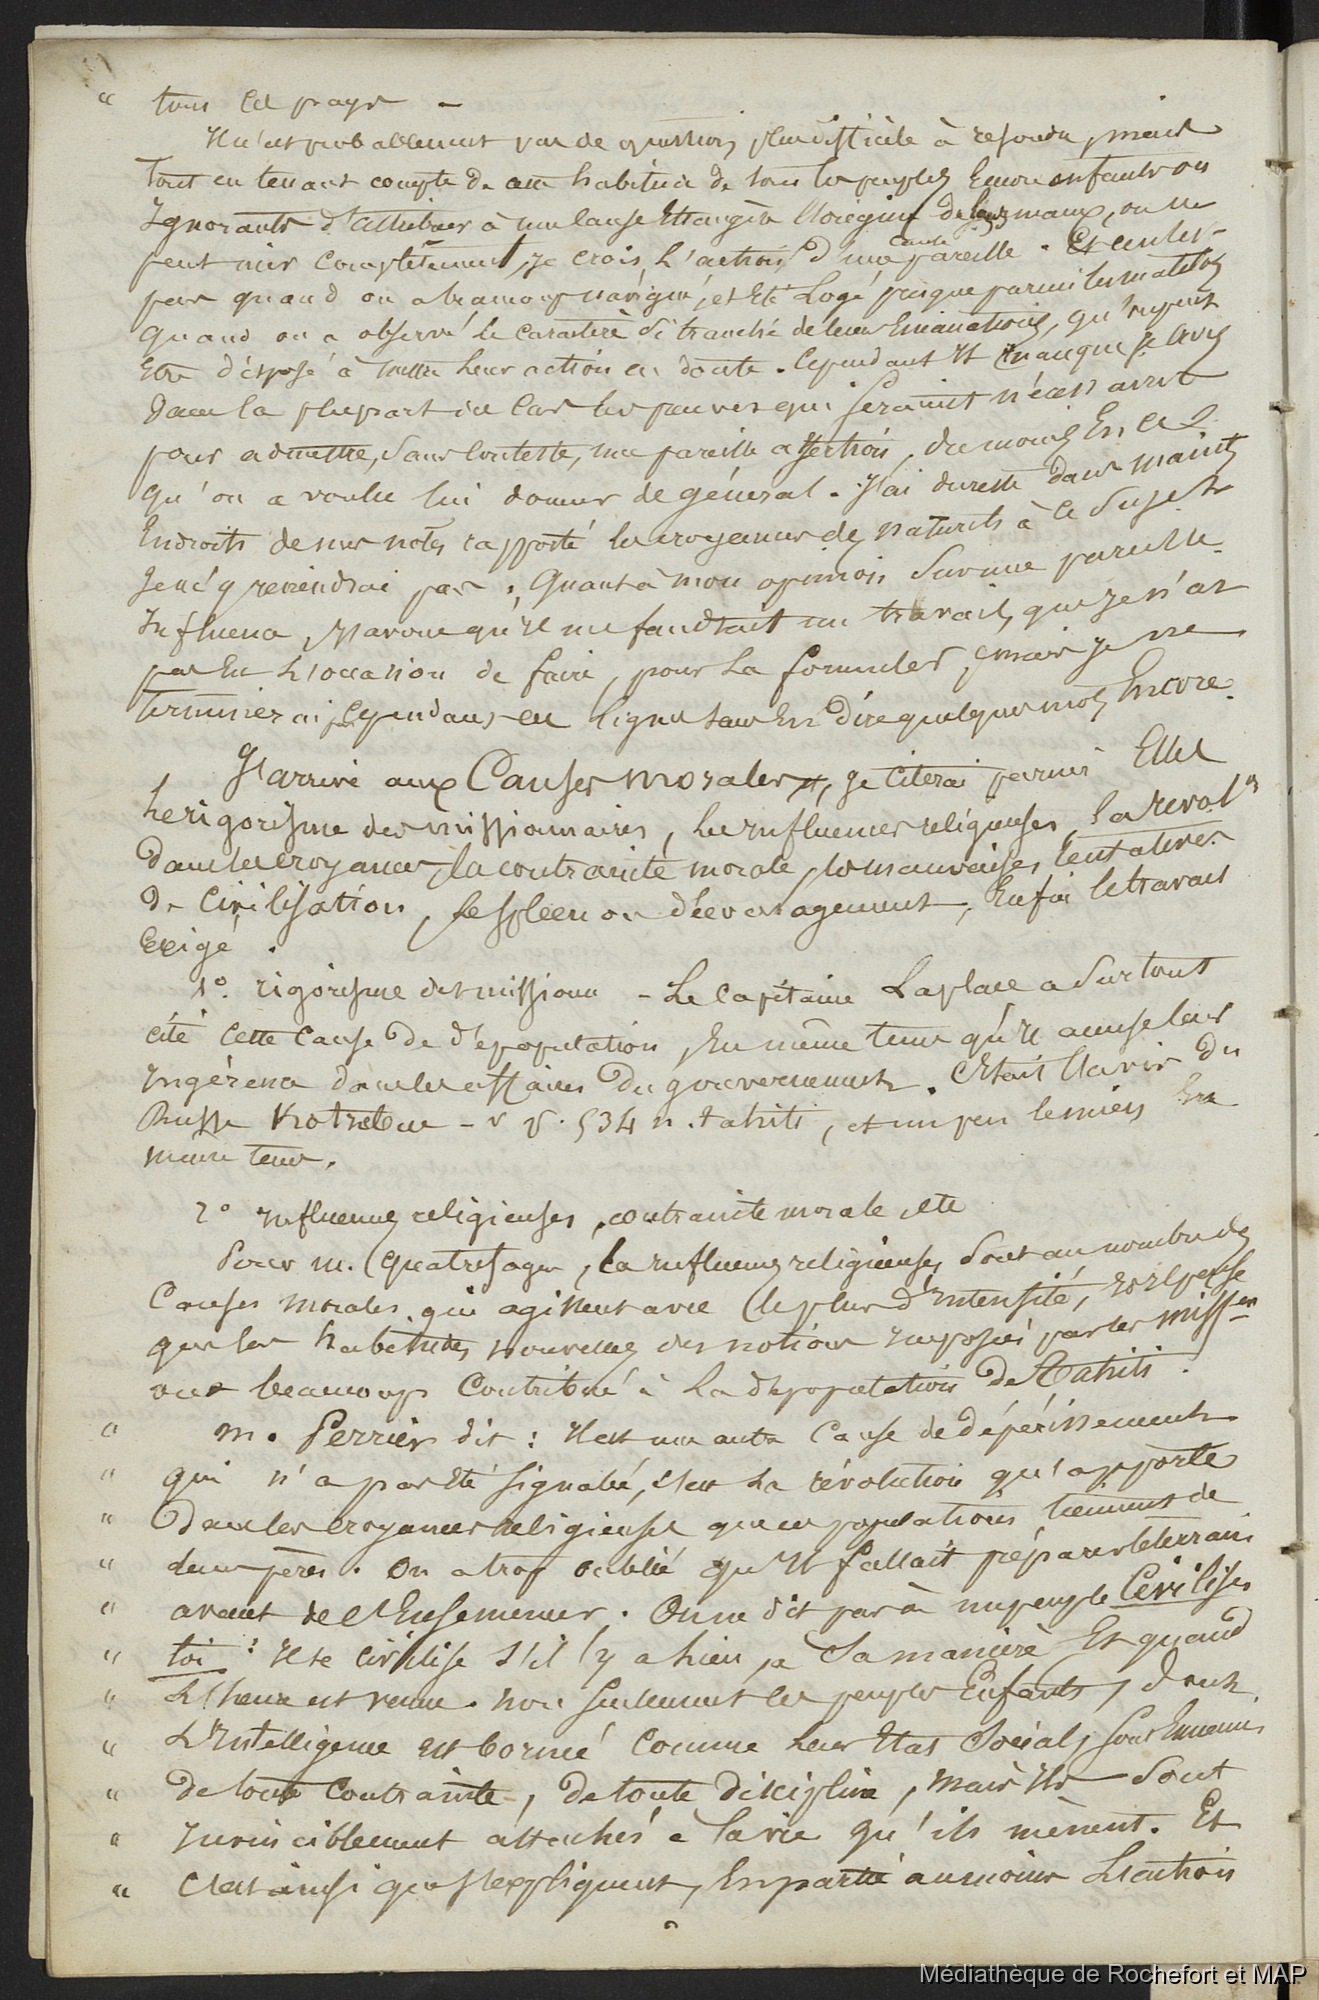 " tous ces pays -
Il n'est probablement pas de question plus difficile à résoudre, mais
tout en tenant compte de cette habitude de tous les peuples encore enfants ou
ignorants d'attribuer à une cause étrangère l'origine de leurs maux, on ne
peut nier complètement, je crois, l'action d'une cause pareille. Ce n'est
pas quand on a beaucoup navigué, et été logé presque parmi les matelots
quand on a observé le caractère si tranché de leurs émanations, qu'on peut
être disposé à mettre leur action en doute. Cependant il manque je crois
dans la plupart des cas les preuves qui seraient nécessaires
pour admettre, sans conteste, une pareille assertion, du moins en ce
qu'on a voulu lui donner de général. J'ai du reste dans maints
endroits de mes notes rapporté les croyances des naturels à ce sujet
je n'y reviendrai pas. Quant à mon opinion sur une pareille
influence, j'avoue qu'il me faudrait un travail, que je n'ai
pas eu l'occasion de faire, pour la formuler, mais je ne
terminerai pas cependant ces lignes sans en dire quelques mots encore.
J'arrive aux Causes morales, je citerai parmi elles
le rigorisme des missionnaires, les influences religieuses, la revol.n
dans les croyances, la contrainte morale, les mauvaises tentatives
de civilisation, le spleen ou découragement, enfin le travail
exigé.
1° rigorisme des missionn - Le capitaine Laplace a surtout
cité cette cause de dépopulation, en même tems qu'il accuse leur
ingérence dans les affaires du gouvernement. C'était l'avis du
Russe Kotzebue - v p. 534 n. tahiti, et un peu le mien en
même tems.
2° influences religieuses, contrainte morale, etc
Pour m. Quatrefages, les influences religieuses sont au nombre des
causes morales qui agissent avec le plus d'intensité, et il pense
que les habitudes nouvelles des notions imposées par les miss.res
ont beaucoup contribué à la dépopulation de Tahiti.
" m. Perrier dit : Il est une autre cause de dépérissement
" qui n'a pas été signalée, c'est la révolution qu'apporte
" dans les croyances religieuses que ces populations tiennent de
" leurs pères. On a trop oublié qu'il fallait préparer le terrain
" avant de l'ensemencer. On ne dit pas à un peuple Civilises
" toi : Il se civilise s'il y a lieu, à sa manière et quand
" l'heure est venue. Non seulement les peuples enfants, dont
" l'intelligence est bornée comme leur état social, sont ennemis
" de toute contrainte, de toute discipline, mais ils sont
" invinciblement attachés à la vie qu'ils mènent. Et
" c'est ainsi que s'expliquent, en partie au moins l'action